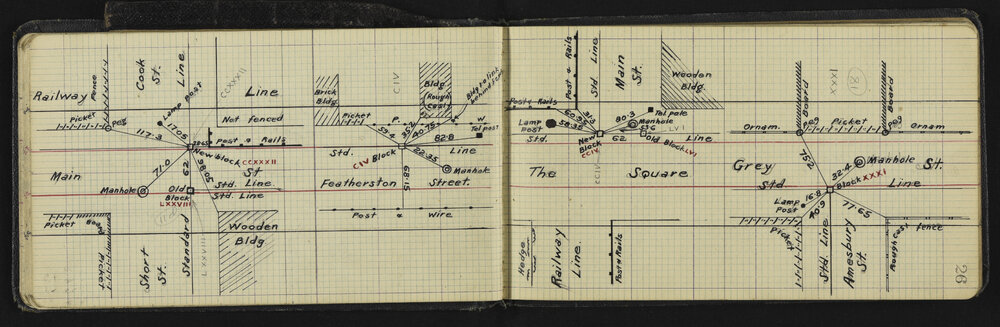 Railway
Line
Cook
St.
Line
CCXXXII
Fence
Picket
Peg
Lamp post
Not fenced
117.3
Post & Rails
New Block CCXXXII
Main
St
71.0
62
Manhole
Old
Block
LXXVIII
Std. Line
Std. Line
Picket
Picket
Short
St.
Standard
LXXVIII
Wooden
Bldg.
Brick
Bldg.
CIV
Bldg.
(Rough
Cast)
Bldg to link
Picket
W
Tel post
40.75
82.8
Std.
CIV Block
Line
22.35
51.89
Manhole
Featherston
Street.
Post & Wire
Post & Rails
Std Line
Main
St.
Wooden
Bldg.
Post & Rails
Lamp
Post
Std.
58.38
80.3
Tel pole
Manhole
LVI
New
Block
CCIV
62
Old Block LVI
Line
The
Square
CCIV
Hedge
Railway
Line.
Post & Rails
XXXI
Board
Board
Ornam.
Peg
Picket
Peg
Ornam
75.2
32.4
Manhole
Grey
St.
Std.
Block XXXI
Line
Lamp
Post
16.8
40.9
77.65
Picket
Std. Line
Amesbury
St.
Rough Cast
fence
26